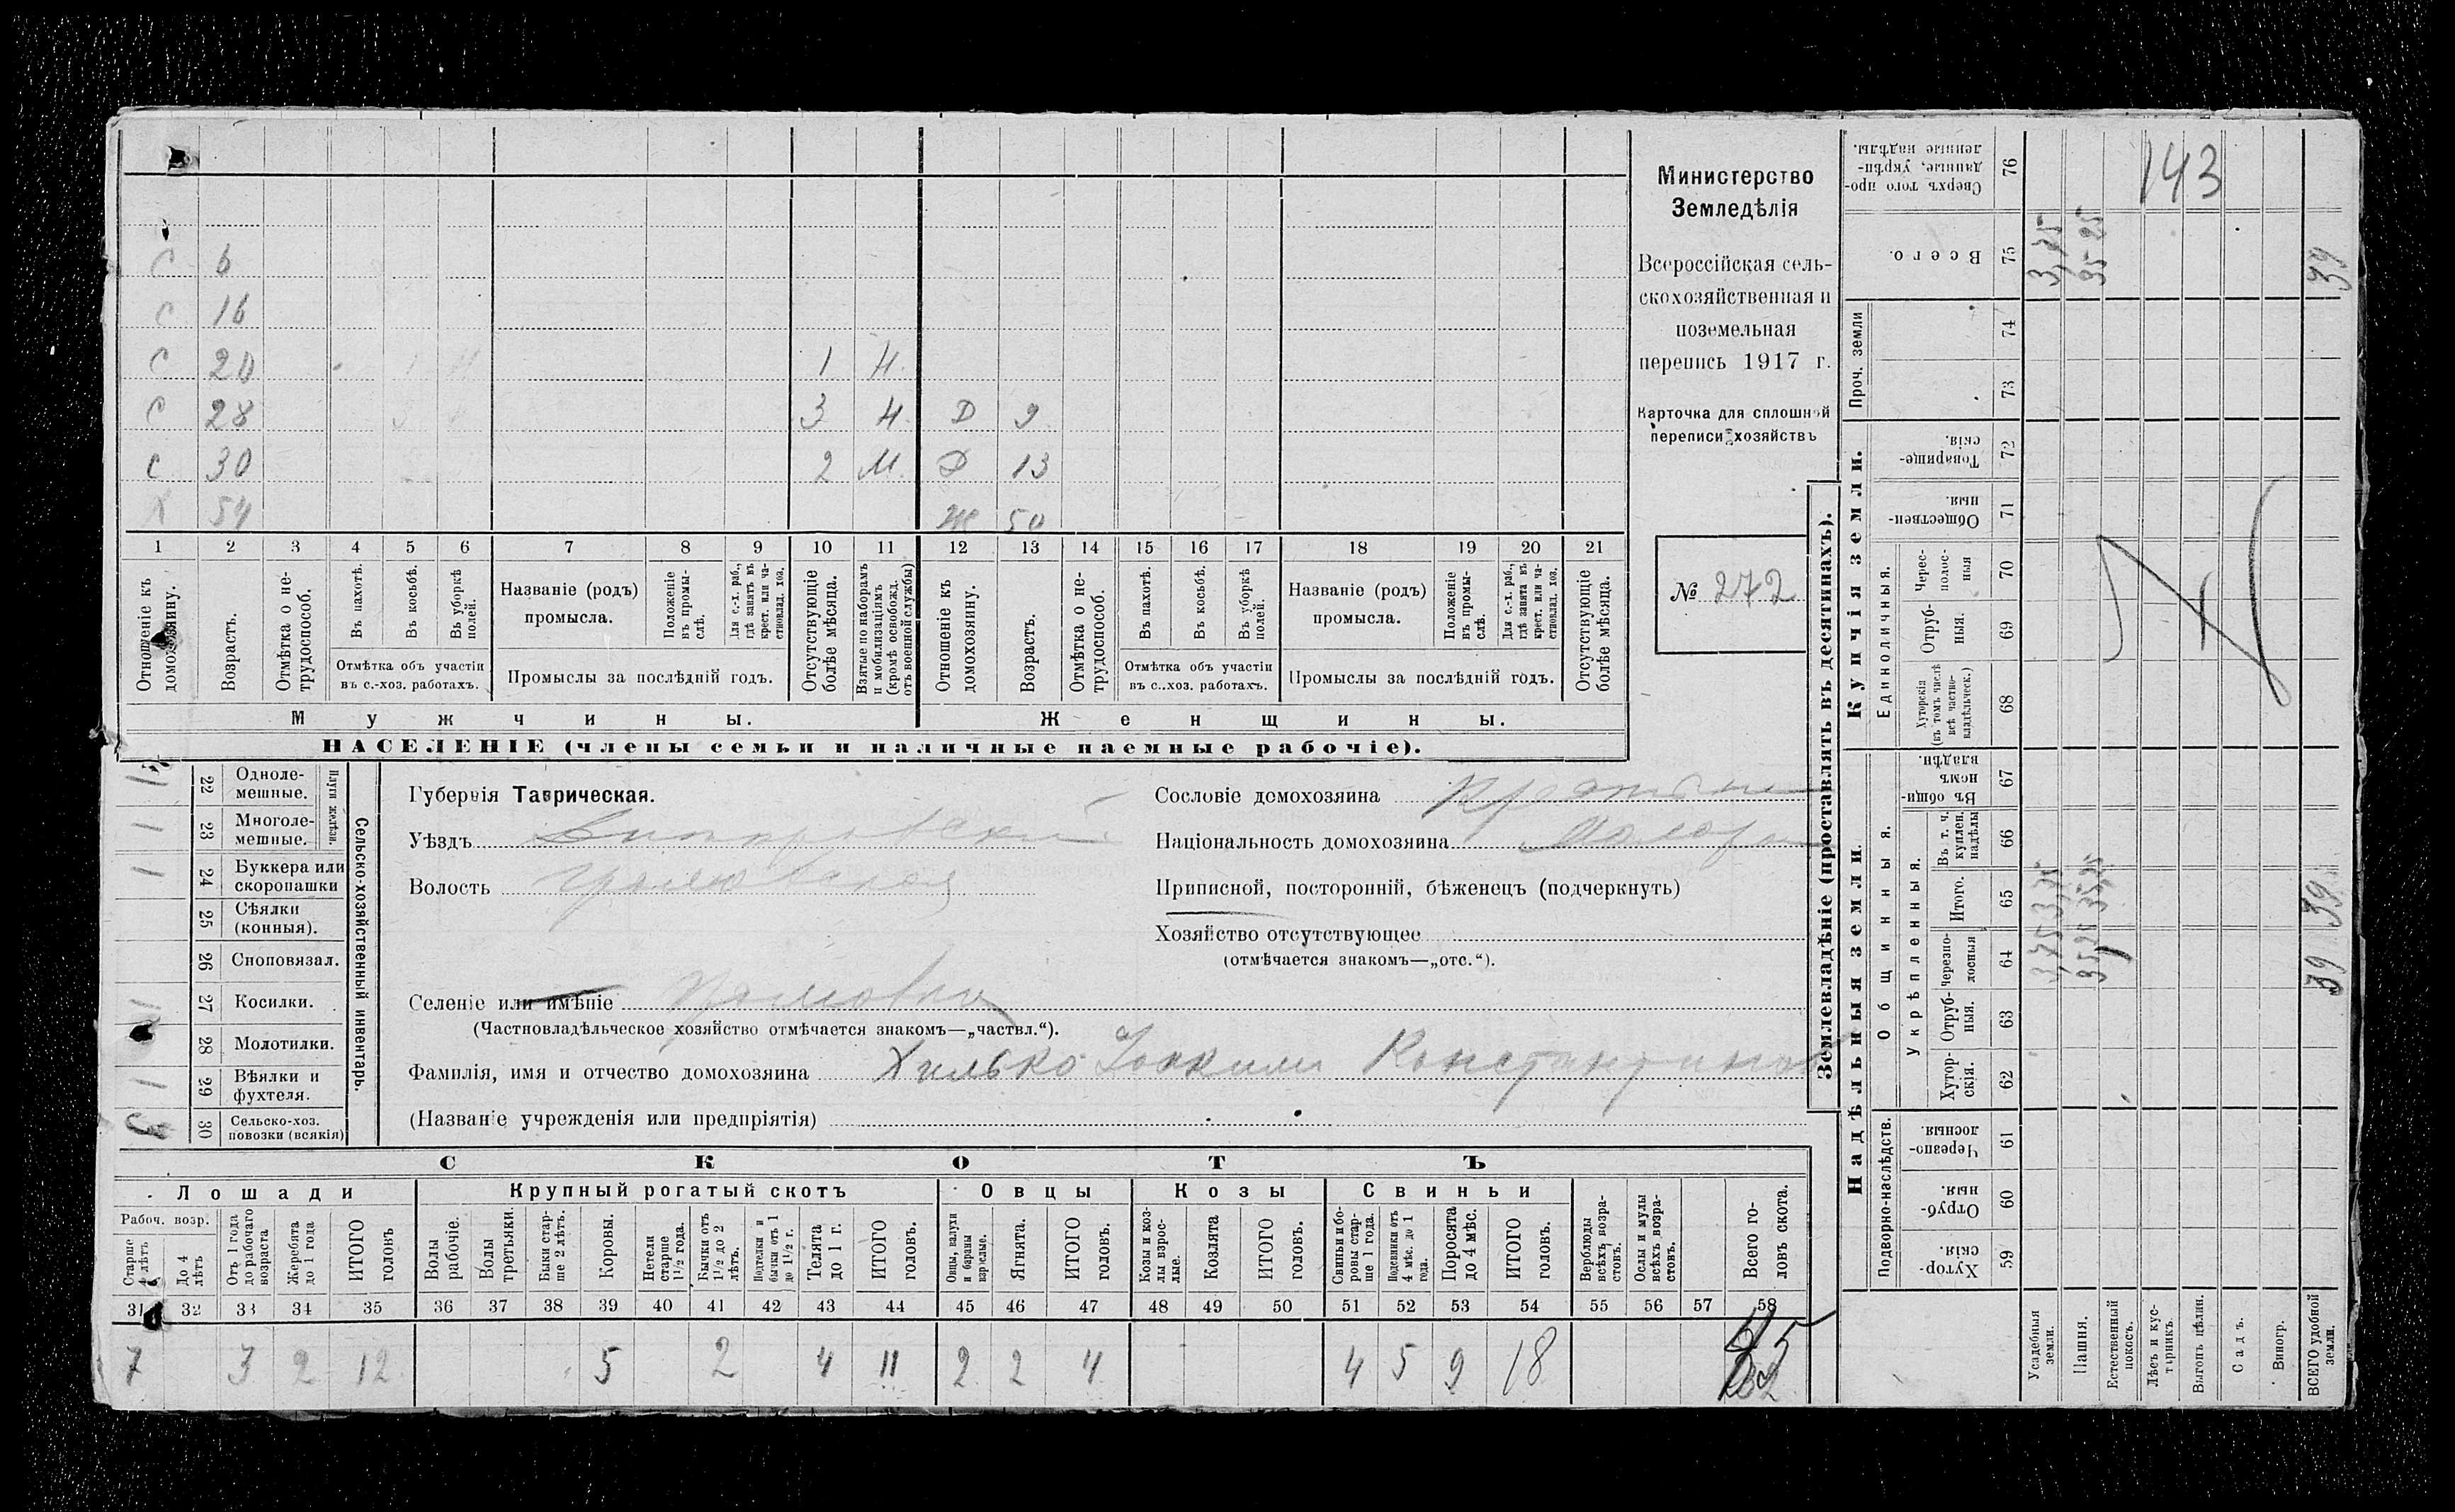 С 6
С 16
С 20 1 Н.
С 28 3 Н. Д 9
С 30 2 М. Д 13
Х 54 Ж 50
1 2 3 4 5 6 7 8 9 10 11 12 13 14 15 16 17 18 19 20 21
Отношеніе къ домохозяину.
Возрастъ.
Отмѣтка о не-трудоспособ.
Въ пахотѣ.
Въ косьбѣ.
Въ уборкѣ полей.
Отмѣтка объ участіи
въ с.-хоз. работахъ.
Названіе (родъ)
промысла.
Положеніе въ промы-слѣ.
Для с.-х. раб., гдѣ занятъ въ крест. или ча-стновлад. хоз.
Промыслы за послѣдній годъ.
Отсутствующіе болѣе мѣсяца.
Взятые по наборамъ и мобилизаціямъ (кромѣ освобожд. отъ военной службы)
Отношеніе къ домохозяину.
Возрастъ.
Отмѣтка о не-трудоспособ.
Въ пахотѣ.
Въ косьбѣ.
Въ уборкѣ полей.
Отмѣтка объ участіи
въ с..хоз. работахъ.
Названіе (родъ)
промысла.
Положеніе въ промы-слѣ.
Для с.-х. раб., гдѣ занята въ крест. или ча-стновлад. хоз.
Промыслы за послѣдній годъ.
Отсутствующіе болѣе мѣсяца.
Мужчины.
Женщины.
НАСЕЛЕНІЕ (члены семьи и наличные наемные рабочіе).
Министерство
Земледѣлія
Всероссійская сель-
скохозяйственная и
поземельная
перепись 1917 г.
Карточка для сплошной
переписи хозяйствъ
№ 272
22 Одноле-мешные. 1
23 Многоле-мешные. 1
Плуги желѣзн.
24 Буккера или скоропашки 1
25 Сѣялки (конныя).
26 Сноповязал.
27 Косилки. 1
28 Молотилки.
29 Вѣялки и фухтеля. 1
30 Сельско-хоз. повозки (всякія) 3
Сельско-хозяйственный инвентарь.
Губернія Таврическая.
Уѣздъ Днѣпровскій
Волость
Селеніе или имѣніе
(Частновладѣльческое хозяйство отмѣчается знакомъ—„частвл.“).
Фамилія, имя и отчество домохозяина Хилько Іоакимъ Константинов
(Названіе учрежденія или предпріятія)
Сословіе домохозяина
Національность домохозяина
Приписной, посторонній, бѣженецъ (подчеркнуть)
Хозяйство отсутствующее
(отмѣчается знакомъ—„отс.“).
СКОТЪ
Лошади
Крупный рогатый скотъ
Овцы
Козы
Свиньи
Рабоч. возр.
Старше 4 лѣтъ
До 4 лѣтъ
Отъ 1 года до рабочаго возраста
Жеребята до 1 года
ИТОГО головъ
Волы рабочіе.
Волы третьяки.
Быки стар-ше 2 лѣтъ.
Коровы.
Нетели старше 1½ года.
Бычки отъ 1½ до 2 лѣтъ.
Подтелки и бычки отъ 1 до 1½ г.
Телята до 1 г.
ИТОГО головъ.
Овцы, валухи и бараны взрослые.
Ягнята.
ИТОГО головъ.
Козы и коз-лы взрос-лые.
Козлята
ИТОГО головъ.
Свиньи и бо-ровы стар-ше 1 года.
Подсвинки отъ 4 мѣс. до 1 года.
Поросята до 4 мѣс.
ИТОГО головъ.
Верблюды всѣхъ возра-стовъ.
Ослы и мулы всѣхъ возра-стовъ.
Всего го-ловъ скота.
31 32 33 34 35 36 37 38 39 40 41 42 43 44 45 46 47 48 49 50 51 52 53 54 55 56 57 58
7 3 2 12 5 2 4 11 2 2 4 4 5 9 18 45
Землевладѣніе (проставлять въ десятинахъ).
Надѣльныя земли.
Купчія земли.
Проч. земли
Подворно-наслѣдств.
Общинныя.
Укрѣпленныя.
Единоличныя.
Хутор-скія. 59
Отруб-ныя. 60
Черезпо-лосныя 61
Хутор-скія. 62
Отруб-ныя. 63
Черезпо-лосныя 64
Итого. 65
Въ т. ч. куплен. надѣлы 66
Въ общи-номъ владѣн. 67
Хуторскія (въ томъ числѣ всѣ частно-владѣльческ.) 68
Отруб-ныя. 69
Черес-полос-ныя 70
Обществен-ныя. 71
Товарище-скія. 72
73
74
Всего. 75
Сверхъ того про-данные, укрѣп-ленные надѣлы. 76
Усадебныя земли. 3,75 3,75 3,75
Пашня. 35,25 35,25 35 25
Естественный покосъ.
Лѣсъ и кус-тарникъ.
Выгонъ цѣлин.
Садъ.
Виногр.
ВСЕГО удобной земли. 39 39 39
143